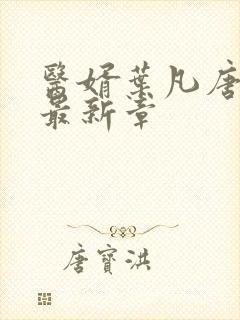 醫婿葉凡唐
最新章
唐寶洪